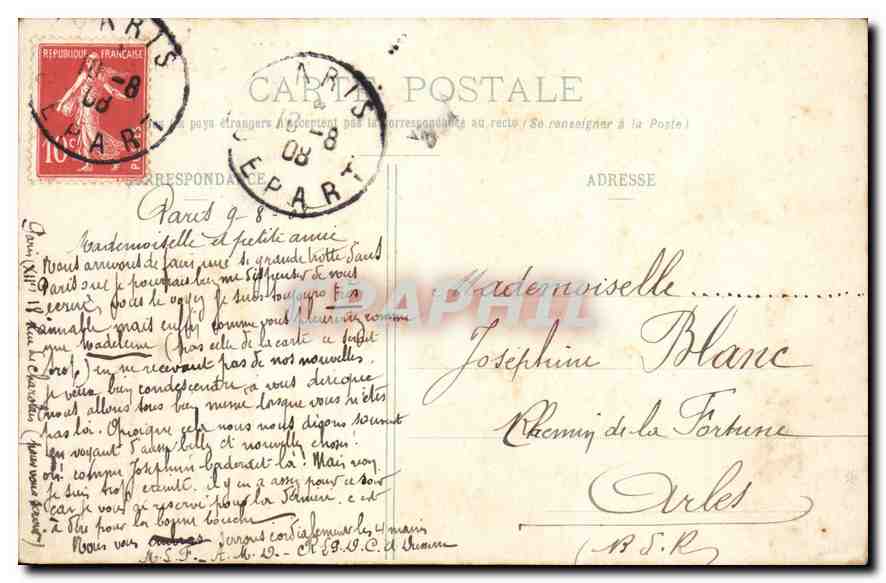 REPUBLIQUE FRANÇAISE
10c
PARIS
10 -8
08
DEPART
PARIS
10 -8
08
DEPART
CARTE POSTALE
pays étrangers n'acceptent pas la correspondance au recto (Se renseigner à la Poste)
CORRESPONDANCE
ADRESSE
Paris 9-8-
Mademoiselle et petite amie
Nous arrivons de faire une si grande trotte dans
Paris que je pourrais bien me dispenser de vous
ecrire, vous le voyez je suis toujours très
aimable mais enfin comme vous comme
que Madeleine (pas celle de la carte ce serait
trop) en ne recevant pas de nos nouvelles.
je veux bien condescendre à vous dire que
nous allons tous bien meme lorsque vous n'êtes
pas la. Quoique cela nous nous disons souvent
en voyant d'aussi belles et nouvelles choses.
oh! comme Josephine la! Mais non
je suis trop ereinté. il y en a assez pour ce soir
car je vous ai reservé pour la dernière. c'est
à dire pour la bonne bouche
Nous vous serrons cordialement les 4 mains
M.S.F. - A.M.D. -
Paris (XII) 18 Rue de Charolais (pour vous
Mademoiselle
Joséphine Blanc
Chemin de la Fortune
Arles
(B.D.R)
CPAPHIL